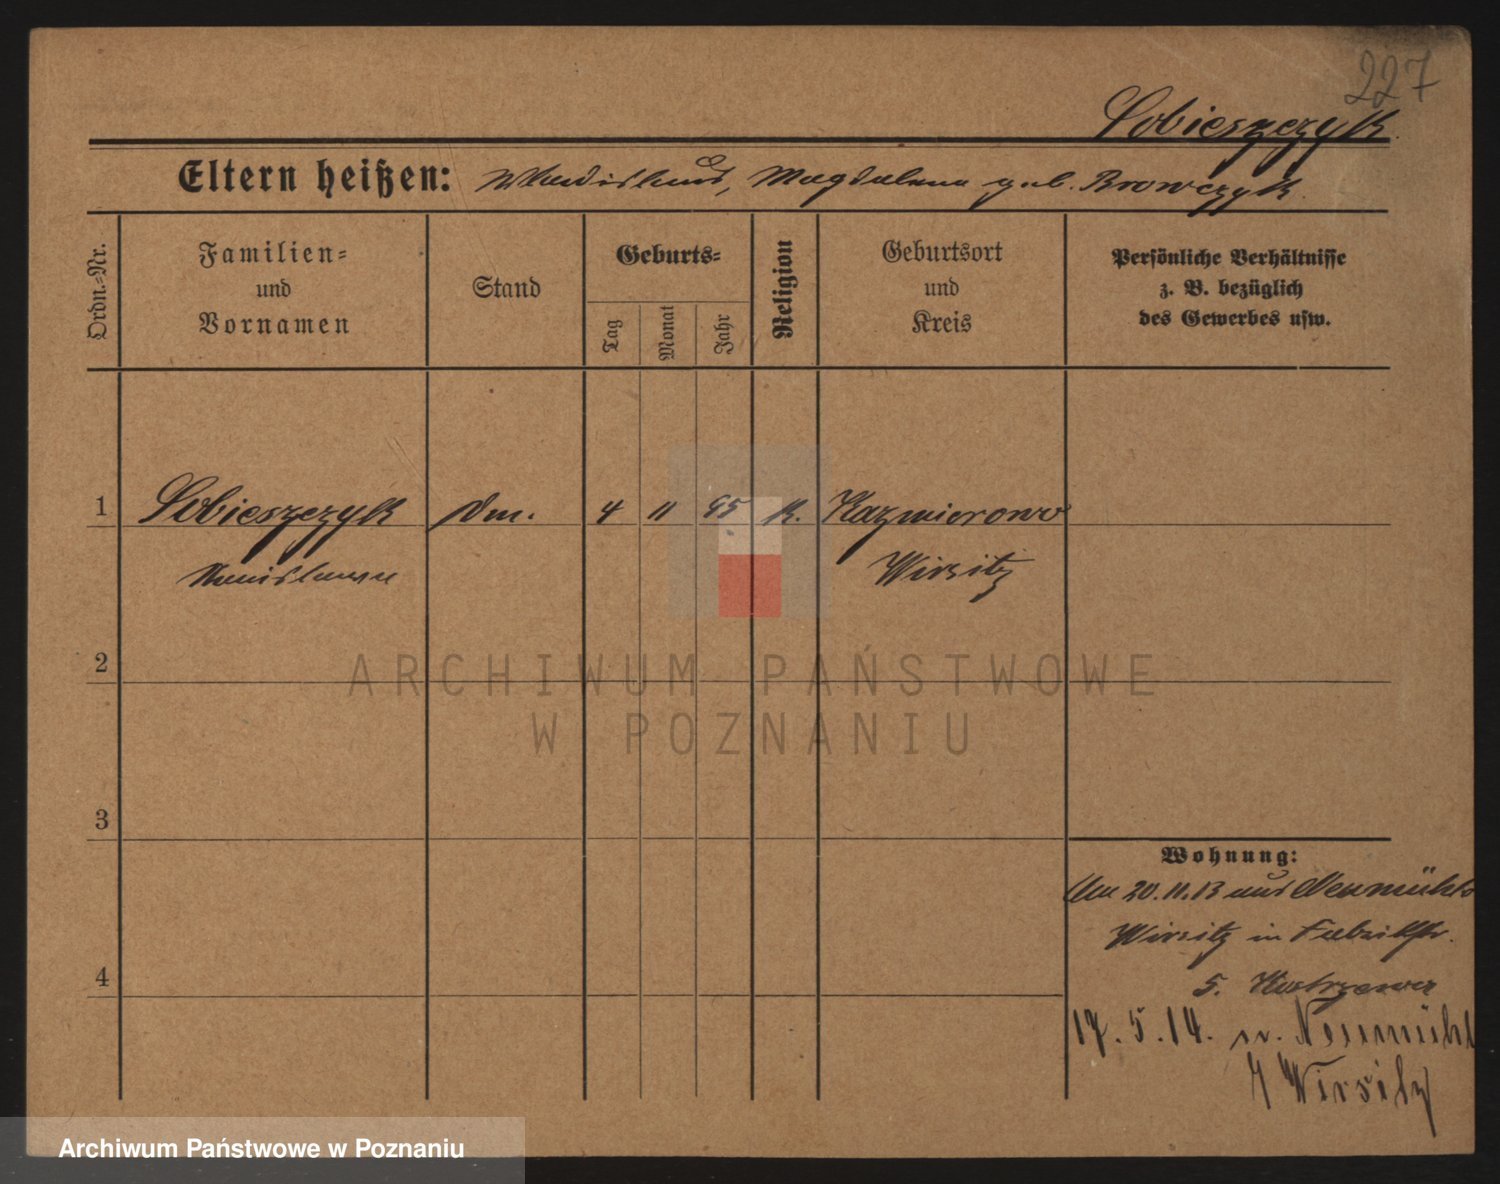 227
Sobieszczyk.
Eltern heißen: Wladislaus, Magdalena geb. Browczyk.
Ordn.-Nr.
Familien- und Vornamen
Stand
Geburts-
Tag
Monat
Jahr
Religion
Geburtsort und Kreis
Persönliche Verhältnisse
z. B. bezüglich
des Gewerbes usw.
1 Sobieszczyk 4 11 95 K. Kazmierowo
Stanislawa Wirsitz
2
3
4
Wohnung:
Am 20.11.13 aus Neumühle
Wirsitz in Fabrikstr.
5.
17.5.14. n. Neumühl
Wirsitz
ARCHIWUM PAŃSTWOWE
W POZNANIU
Archiwum Państwowe w Poznaniu